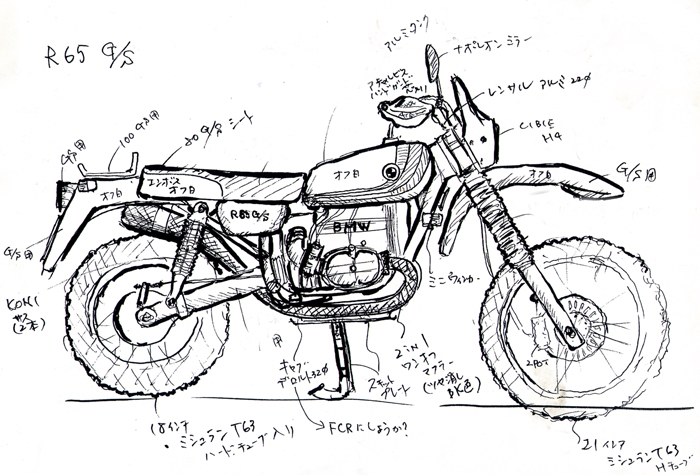 R65 G/S
アルミタンク
ナポレオンミラー
アチェルビス
ハンドガード
レンサル アルミ22φ
CIBIE
H4
G/S用
100GS用
80G/Sシート
エンボス
オフ白
オフ白
オフ白
G/S用
R65G/S
BMW
G/S用
ミニウインカー
KONI
サス
(2本)
2POT
用
キャブ
デロルト32φ
スキッド
プレート
2in1
ワンオフ
マフラー
(ツヤ消し
BK色)
→FCRにしようか?
18インチ
・ミシュランT63
ハードチューブ入り
21インチ
ミシュランT63
Hチューブ